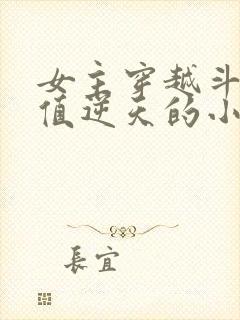 女主穿越斗
值逆天的小
長宜